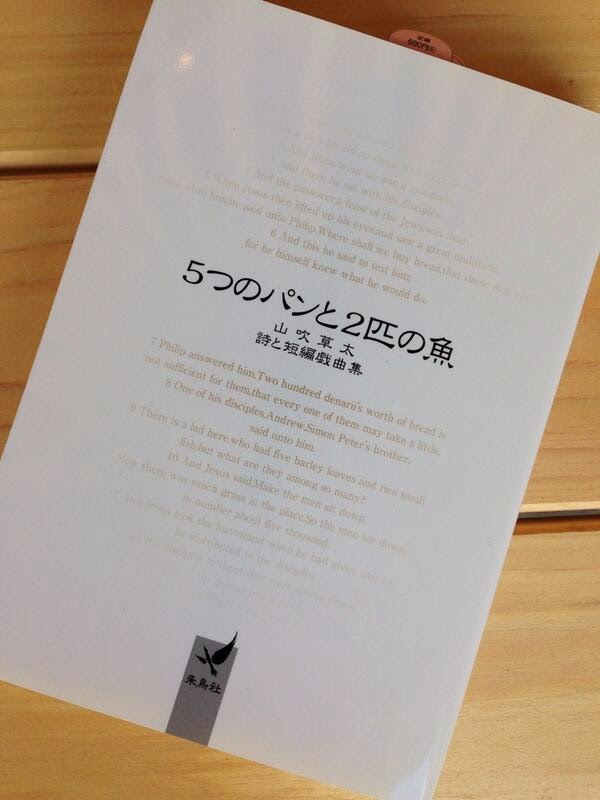 定価
660円(本)
3 And Jesus went up into a mountain,
and there he sat with his disciples.
4 And the passover,a feast of the Jews,was near.
5 When Jesus then lifted up his eyes,and saw a great multitude
come unto him,he said unto Philip,Where shall we buy bread,that these may eat?
6 And this he said to test him;
for he himself knew what he would do.
5つのパンと2匹の魚
山吹草太
詩と短編戯曲集
7 Philip answered him,Two hundred denarii's worth of bread is
not sufficient for them,that every one of them may take a little.
8 One of his disciples,Andrew,Simon Peter's brother,
said unto him.
9 There is a lad here,who had five barley loaves and two small
fish;but what are they among so many?
10 And Jesus said,Make the men sit down.
Now there was much grass in the place.So the men sat down,
in number about five thousand.
11 And Jesus took the loaves,and when he had given thanks,
he distributed to the disciples,
and the disciples to them that were sitting down;
朱鳥社